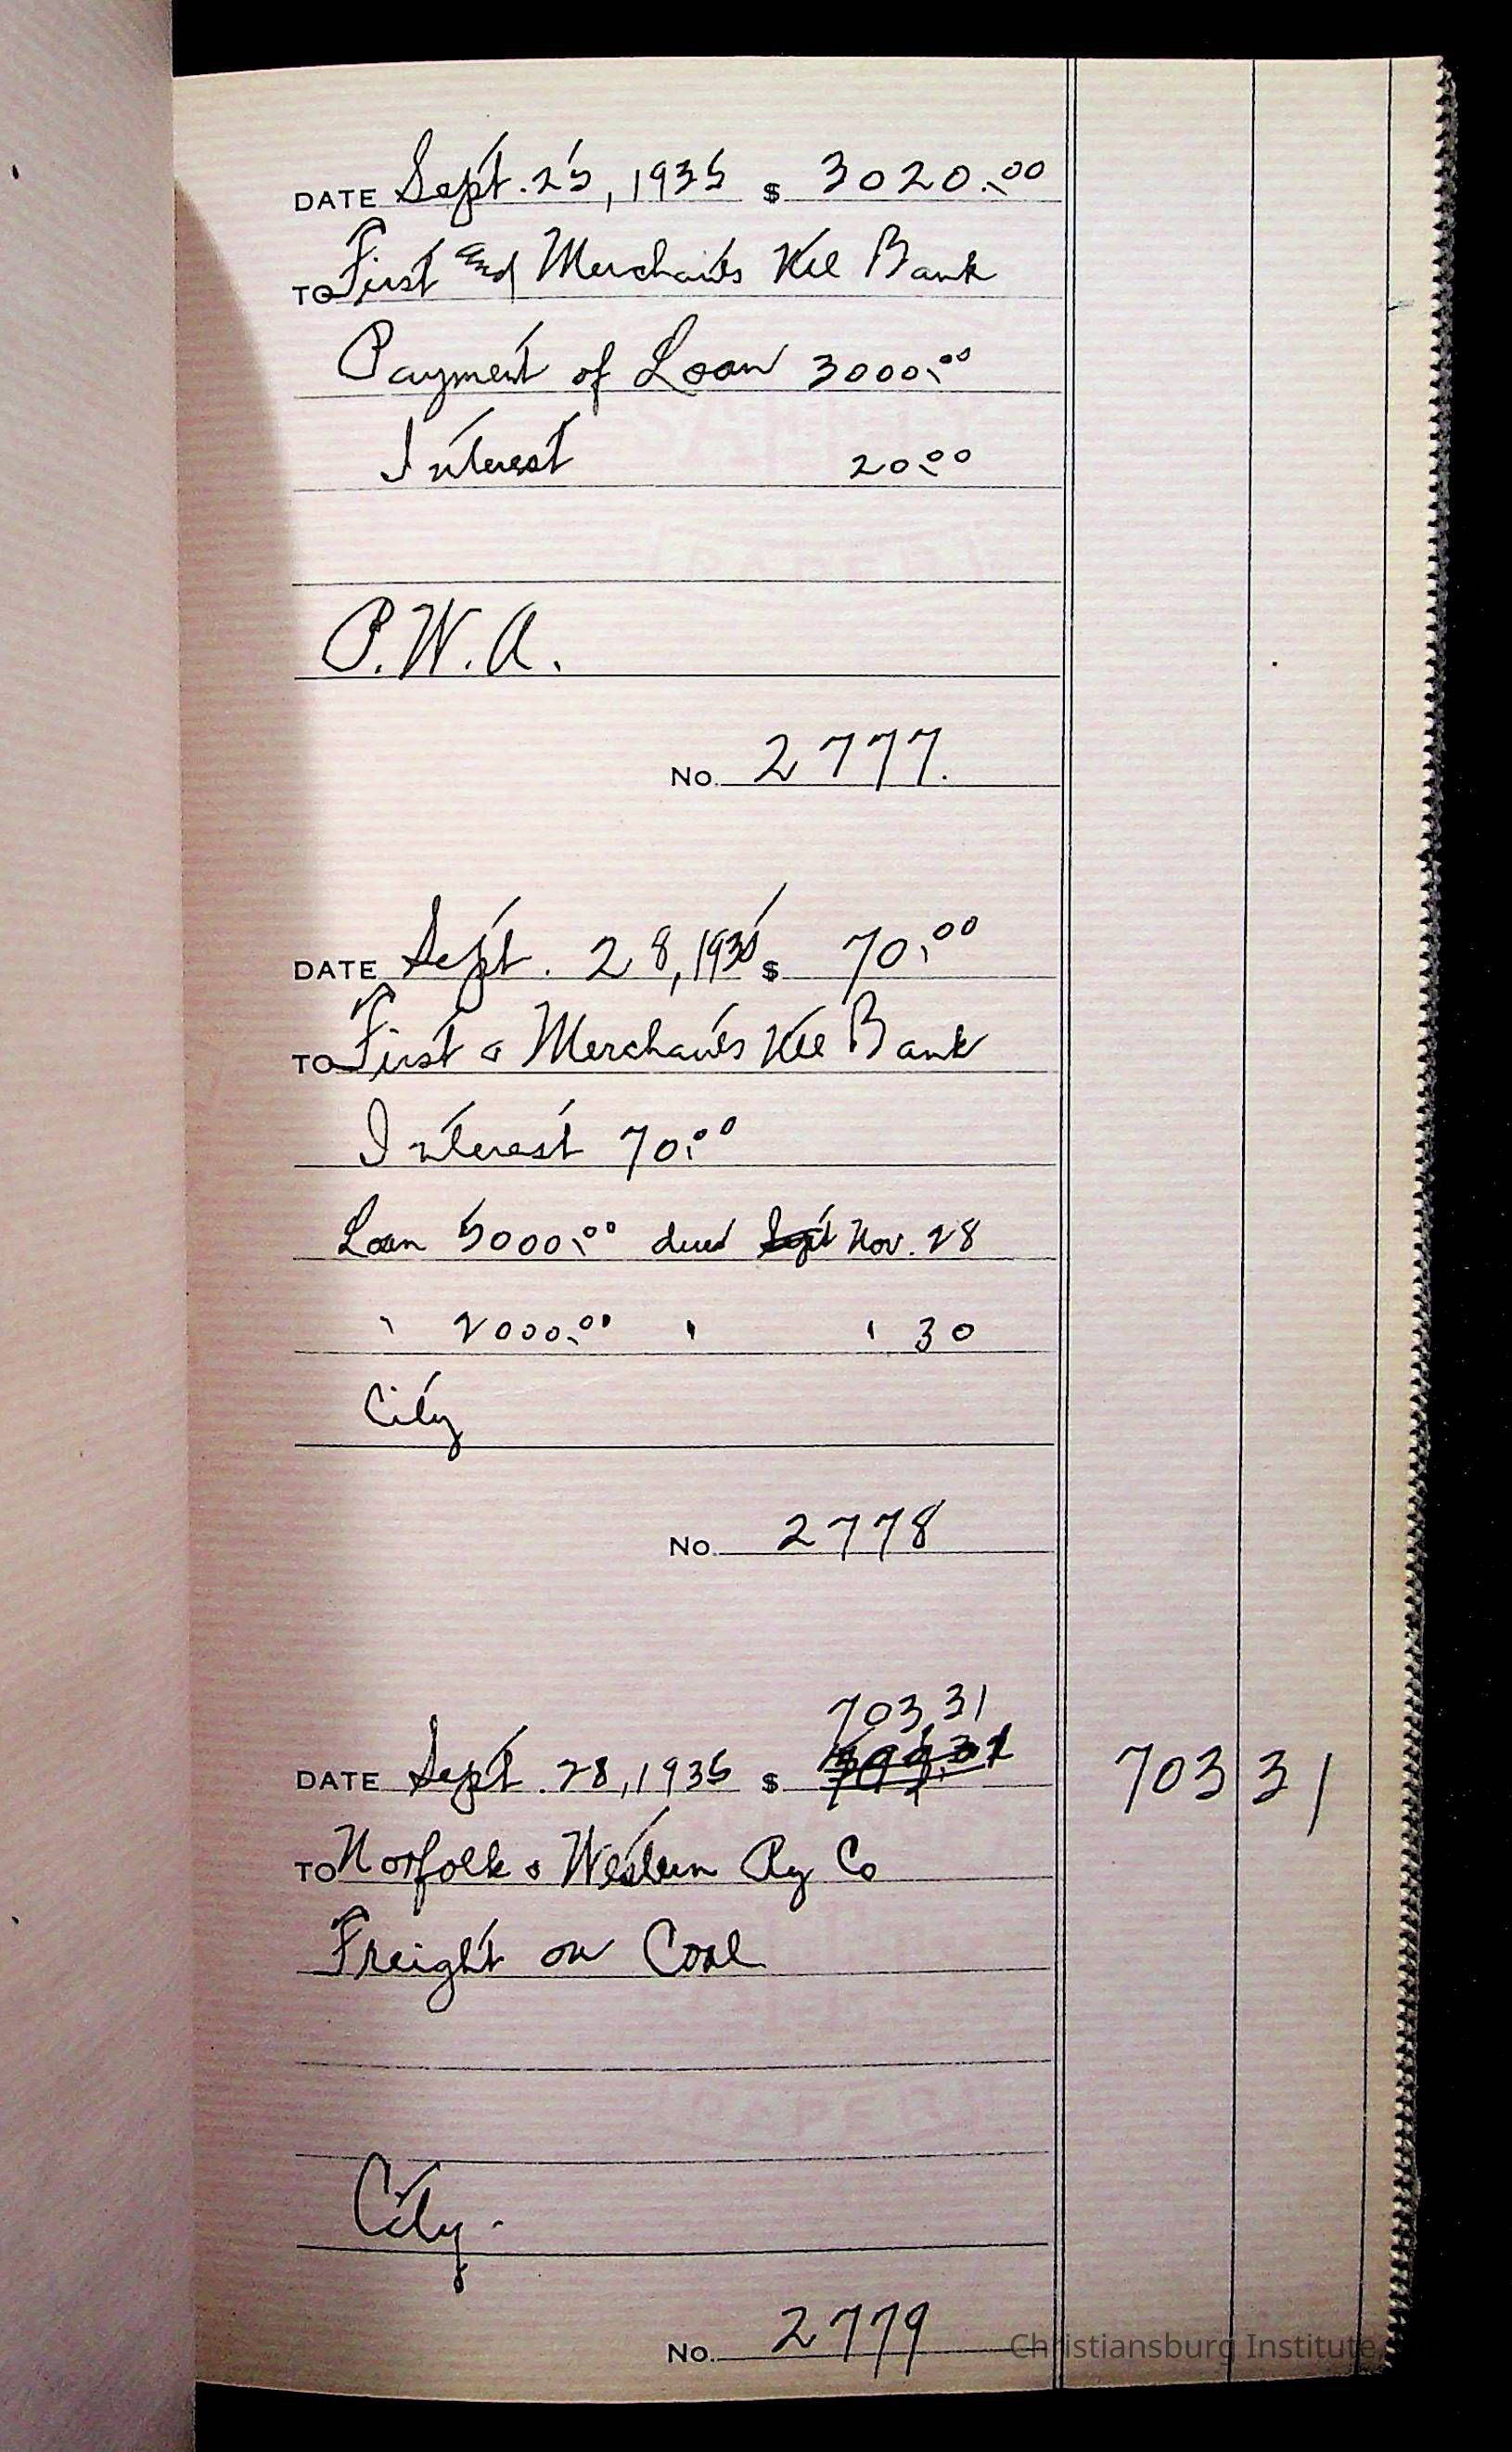 DATE Sept. 25, 1935 $ 3020.00
TO First and Merchants Natl Bank
Payment of Loan 3000.00
Interest 20.00
P.W.A.
No. 2777.
DATE Sept. 28, 1935 $ 70.00
TO First & Merchants Natl Bank
Interest 70.00
Loan 5000.00 due Sept Nov. 28
" 2000.00 " " 30
City
No. 2778
703.31
DATE Sept. 28, 1935 $
703 31
TO Norfolk & Western Ry Co
Freight on Coal
City.
No. 2779
Christiansburg Institute,